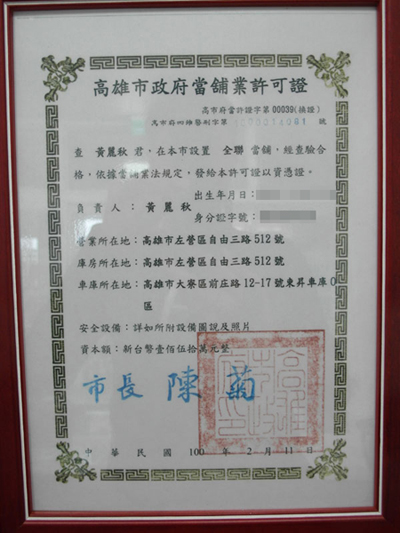 高雄市政府當舖業許可證
高市府當許證字第 00039(換證)
高市府四維警刑字第 1000014081 號
查 黃麗秋 君,在本市設置 全聯 當舖,經查驗合
格,依據當舖業法規定,發給本許可證以資憑證。
出生年月日:
負責人:黃麗秋
身分證字號:
營業所在地:高雄市左營區自由三路512號
庫房所在地:高雄市左營區自由三路512號
車庫所在地:高雄市大寮區前庄路12-17號東昇車庫
區
安全設備:詳如所附設備圖說及照片
資本額:新台幣壹佰伍拾萬元整
市長 陳菊
高雄市政府印
中華民國 100 年 2 月 11 日